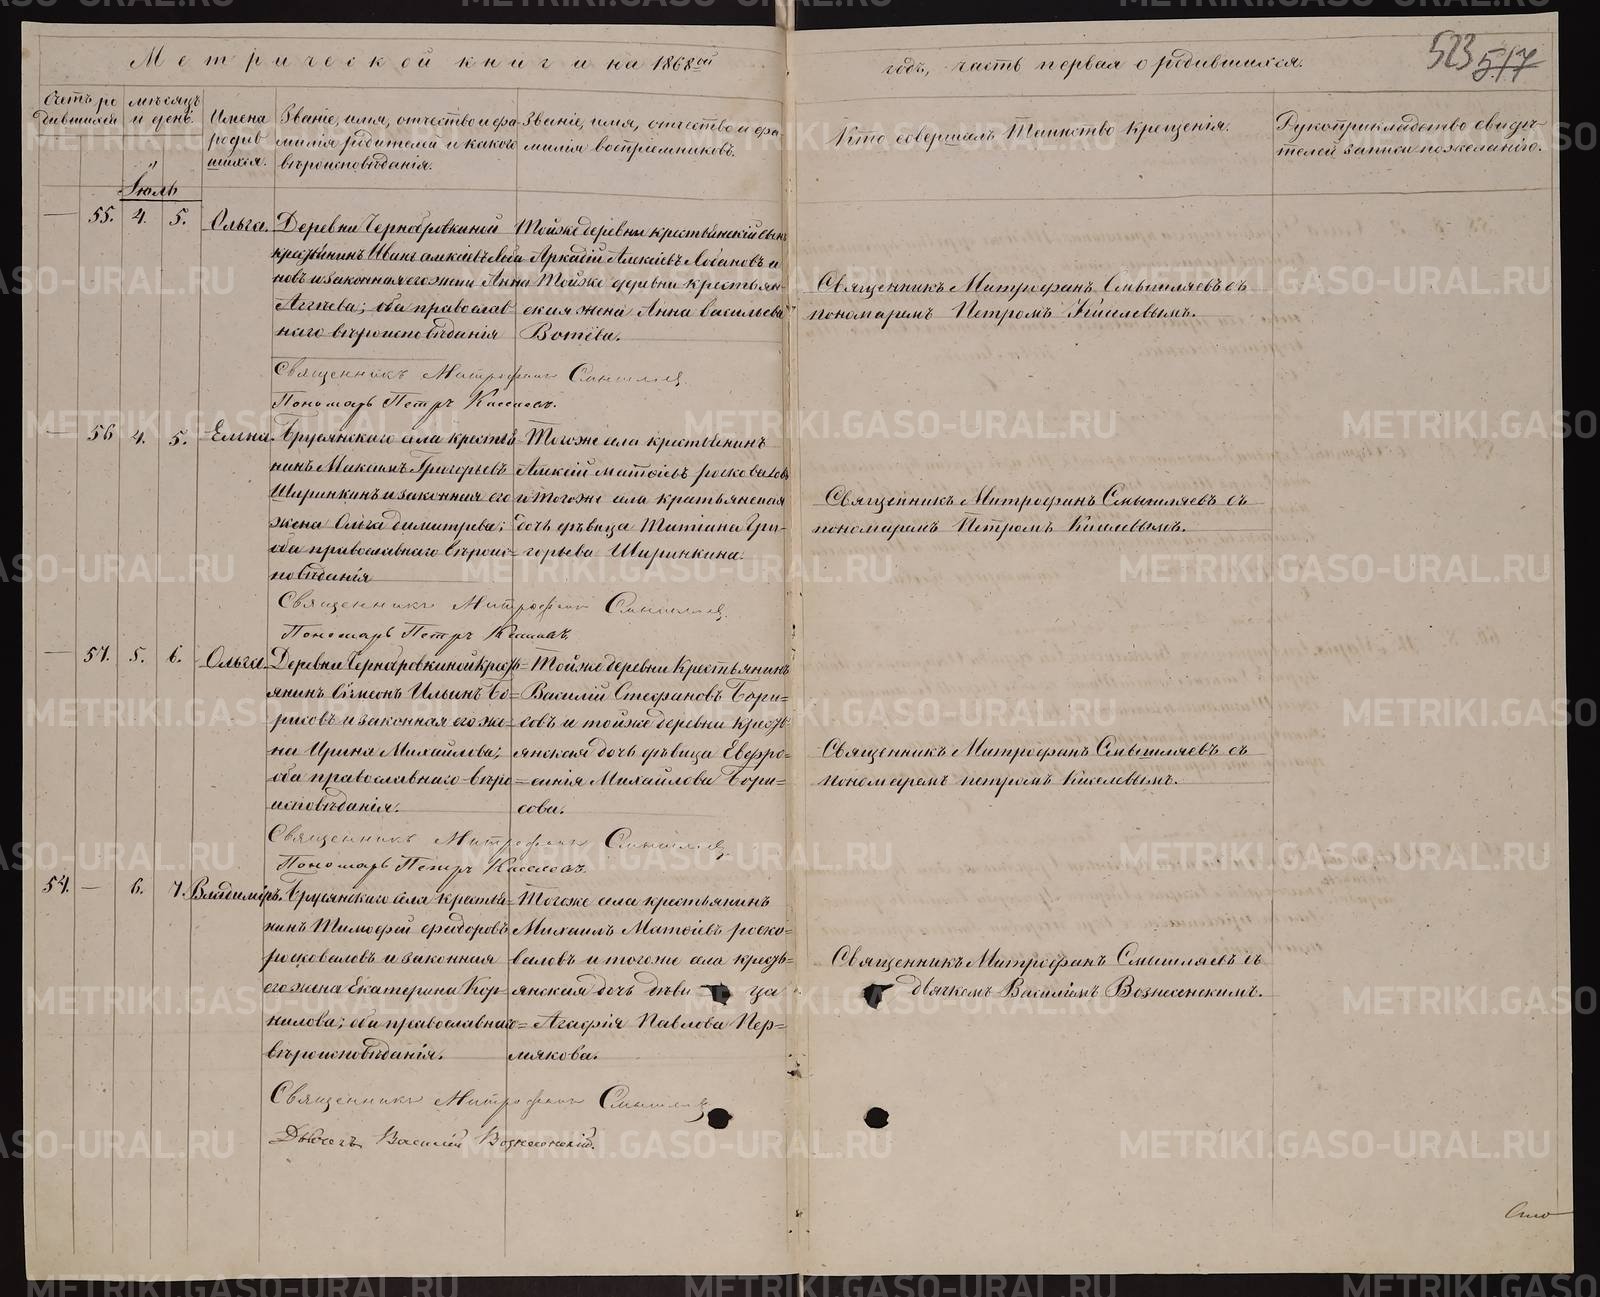 Метрической книги на 1868ой годъ, часть первая о родившихся.
523 517
Счетъ ро
дившихся
мѣсяцъ
и день.
Имена
родив
шихся.
Званіе, имя, отчество и фа
милія родителей и какого
вѣроисповѣданія.
Званіе, имя, отчество и фа-
милія воспріемниковъ.
Кто совершалъ Таинство крещенія.
Рукоприкладство свидѣ-
телей записи по желанію.
Іюль
— 55. 4. 5. Ольга.
Деревни Чернобровкиной
крестьянинъ Иванъ Алексіевъ Лоба
новъ и законная его жена Анна
Агѣева; оба православ
наго вѣроисповѣданія
Тойже деревни крестьянскій сынъ
Аркадій Алексіевъ Лобановъ и
тойже деревни крестьян-
ская жена Анна Васильева
Вотева.
Священникъ Митрофанъ Смышляевъ съ
пономаремъ Петромъ Киселевымъ.
Священникъ Митрофанъ Смышляев.
Пономарь Петръ Киселевъ.
— 56 4. 5. Елена.
Бруснянскаго села крестья
нинъ Максимъ Григорьевъ
Ширинкинъ и законная его
жена Ольга Димитрева;
оба православнаго вѣроис=
повѣданія
Тогоже села крестьянинъ
Алексій Матѳіевъ росковаловъ
и тогоже села крестьянская
дочь дѣвица Татіана Гри-
горьева Ширинкина.
Священникъ Митрофанъ Смышляевъ съ
пономаремъ Петромъ Киселевымъ.
Священникъ Митрофанъ Смышляев.
Пономарь Петръ Киселевъ.
— 57. 5. 6. Ольга.
Деревни Чернобровкиной кресть=
янинъ Сѵмеонъ Ильинъ Бо=
рисовъ и законная его же=
на Ирина Михайлова;
оба православнаго вѣро
исповѣданія.
Тойже деревни Крестьянинъ
Василій Стефановъ Бори=
совъ и тойже деревни кресть
янская дочь дѣвица Евфро=
синія Михайлова Бори=
сова.
Священникъ Митрофанъ Смышляевъ съ
пономаремъ петромъ Киселевымъ.
Священникъ Митрофанъ Смышляев.
Пономарь Петръ Киселевъ.
54. — 6. 7. Владиміръ.
Бруснянскаго села крестья=
нинъ Тимофей Феодоровъ
росковаловъ и законная
его жена Екатерина Кор=
нилова; оба православнаго=
вѣроисповѣданія.
Тогоже села крестьянинъ
Михаилъ Матѳіевъ роско=
валовъ и тогоже села кресть=
янская дочь дѣви ца
Агафія Павлова Пер=
мякова.
Священникъ Митрофанъ Смышляевъ съ
дьячкомъ Василіемъ Вознесенскимъ.
Священникъ Митрофанъ Смышляев
Дьячекъ Василій Вознесенскій.
METRIKI.GASO-URAL.RU